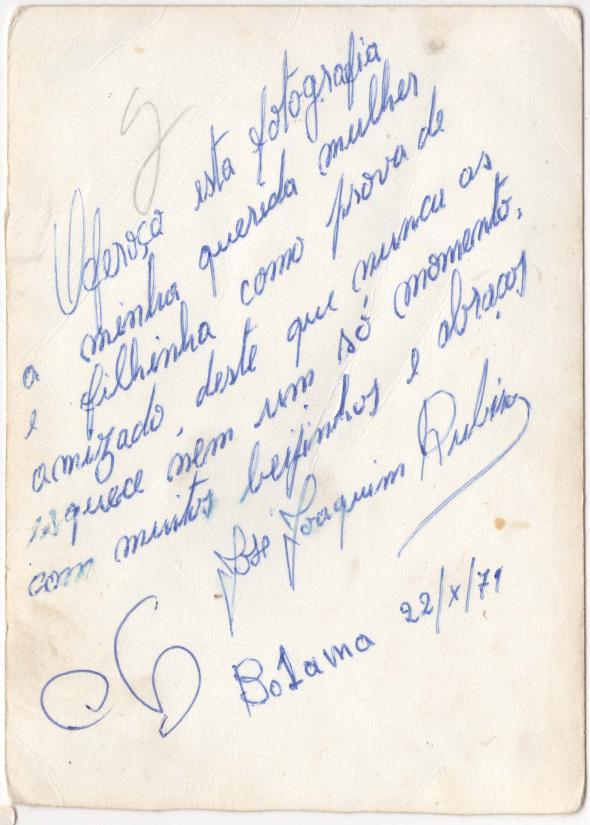 Oferoço esta fotografia
a minha querida mulher
e filhinha como prova de
amizado, deste que nunca as
esquece nem um só momento.
com muitos beijinhos e abraços
José Joaquim Rubim
Bolama 22/X/71